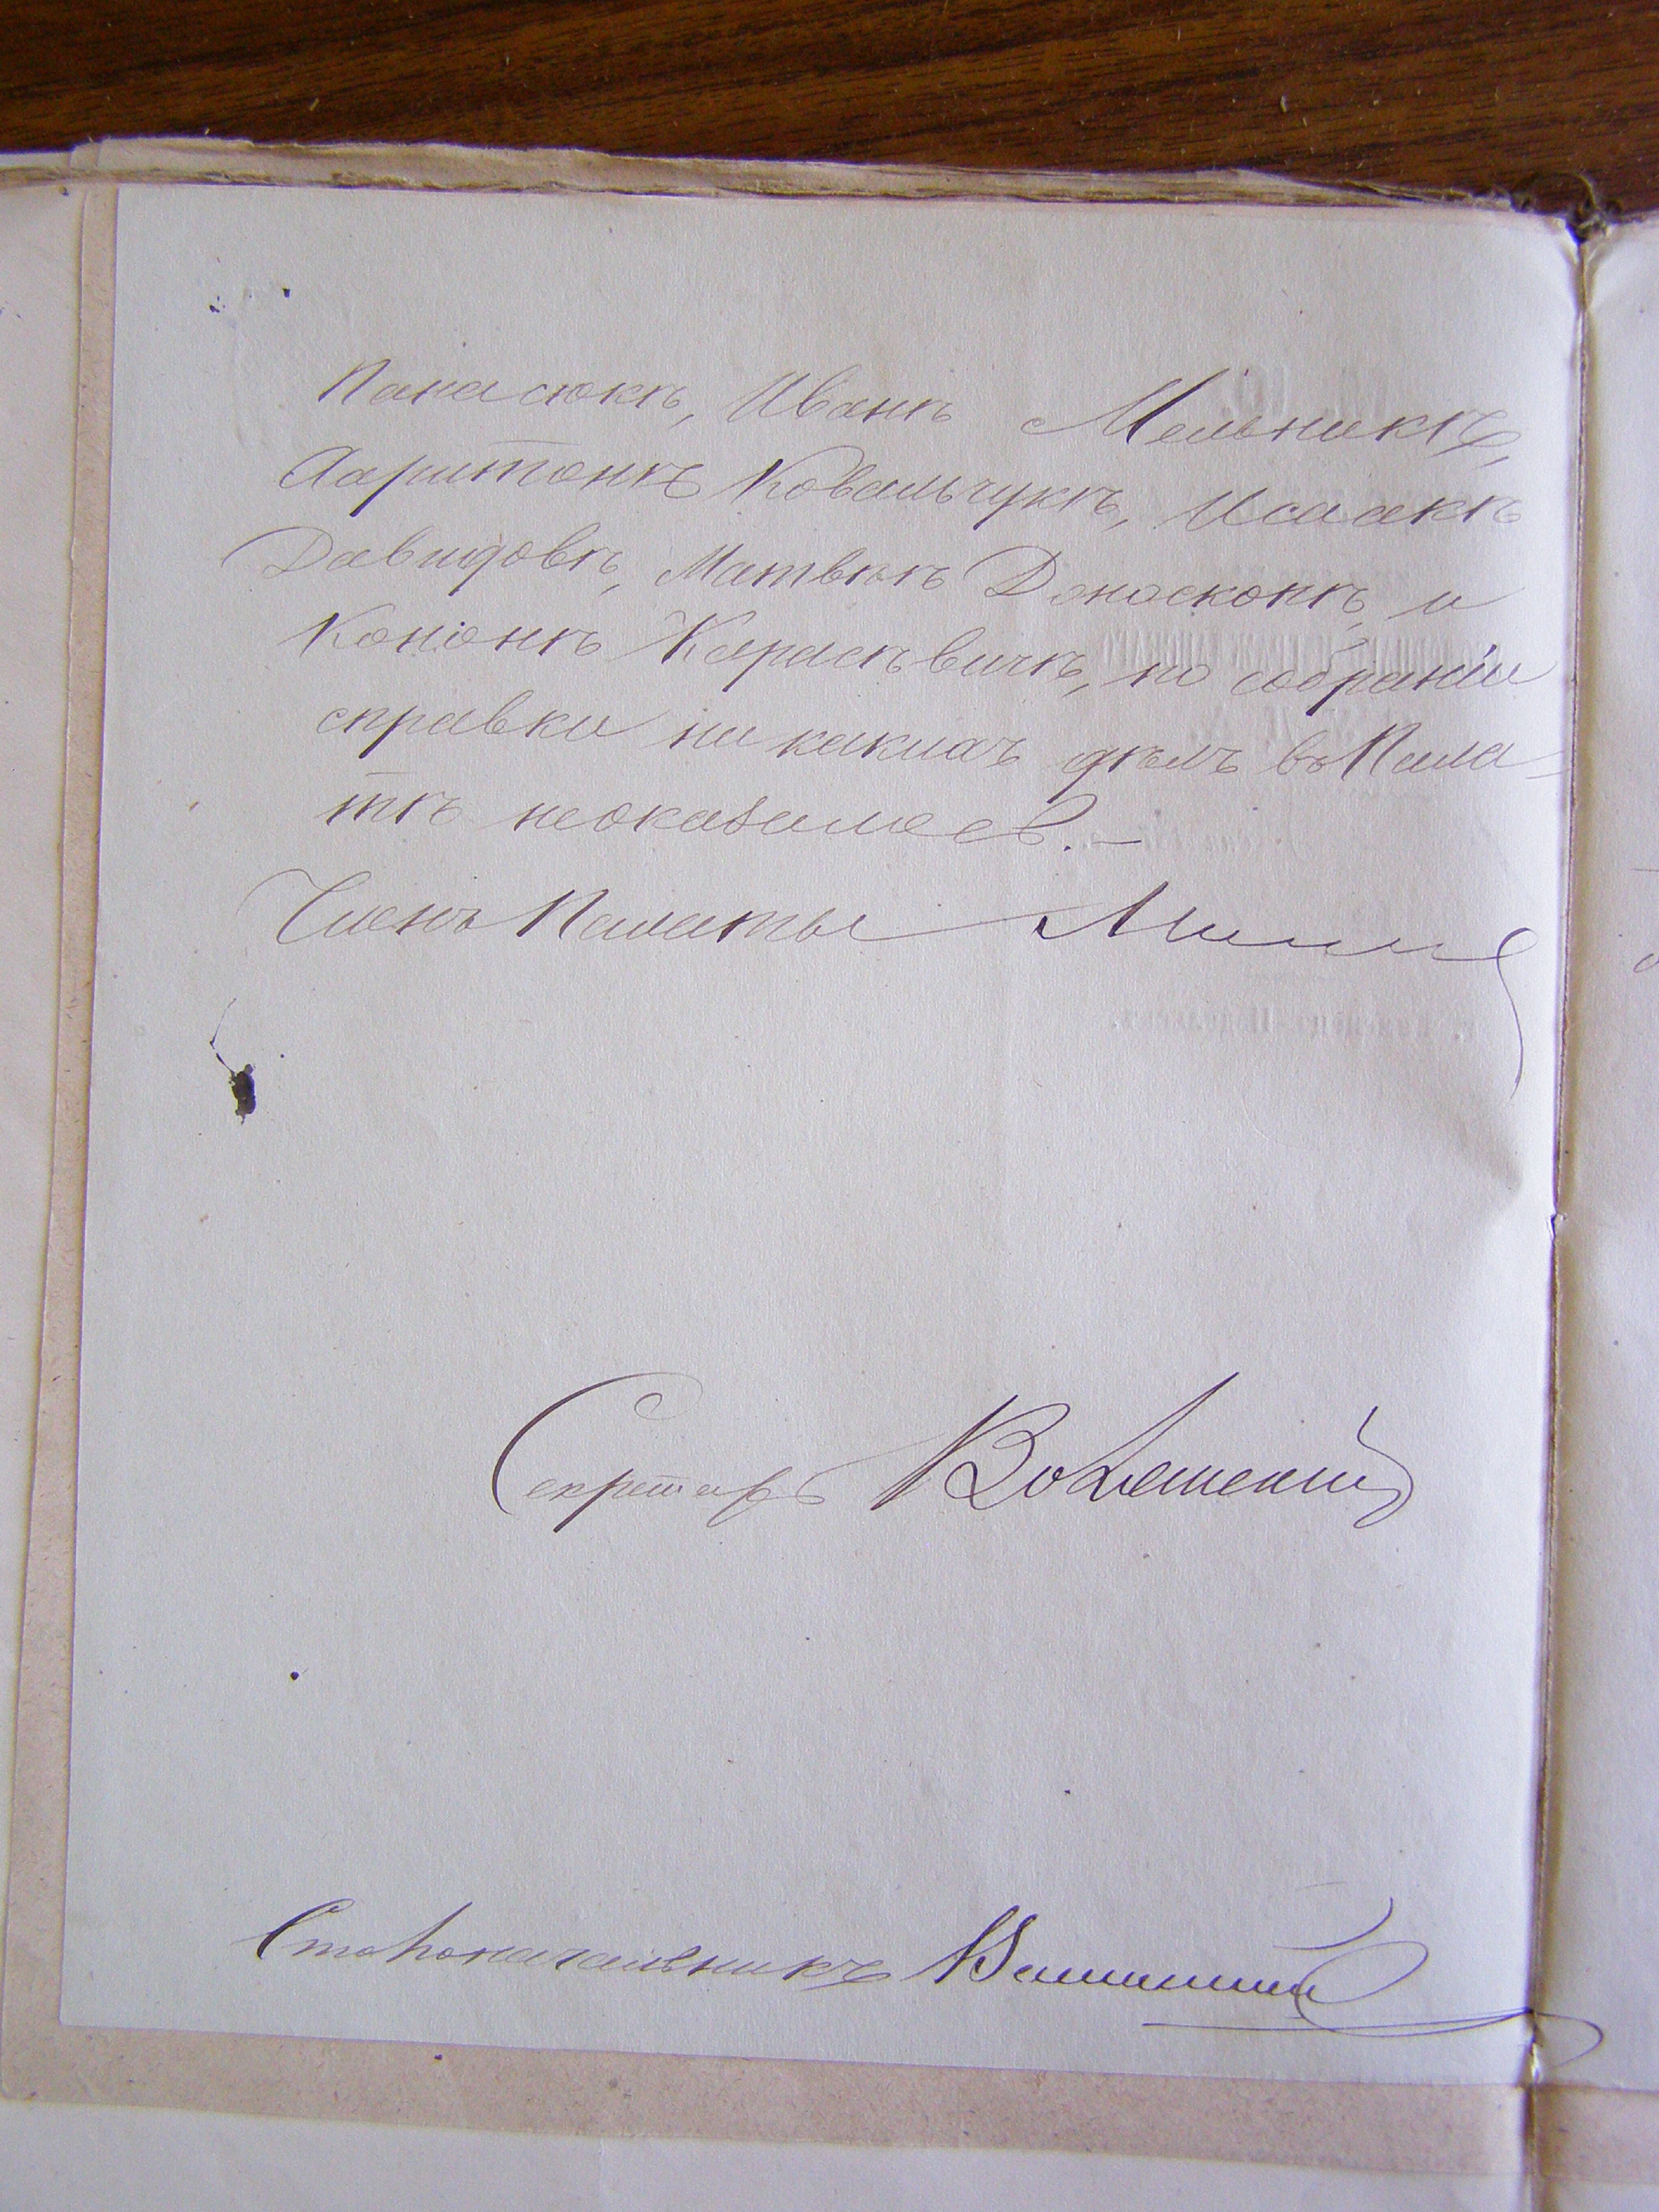 Панасюкъ, Иванъ Мельникъ,
Харитонъ Ковальчукъ, Исаакъ
Давидовъ, Матвѣй и
Кононъ по собраніи
справки ни какихъ дѣлъ въ Пала-
тѣ неоказалось.—
Членъ Палаты
Секретарь
Столоначальникъ